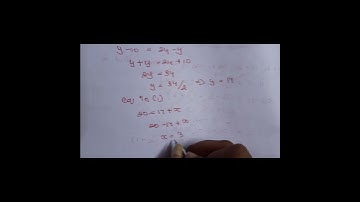 y-10 = 24-y
y+y = 24+10
2y = 34
y = 34/2 ⇒ y = 17
eqn (1)
20 = 17 + x
20-17 + x
x = 3